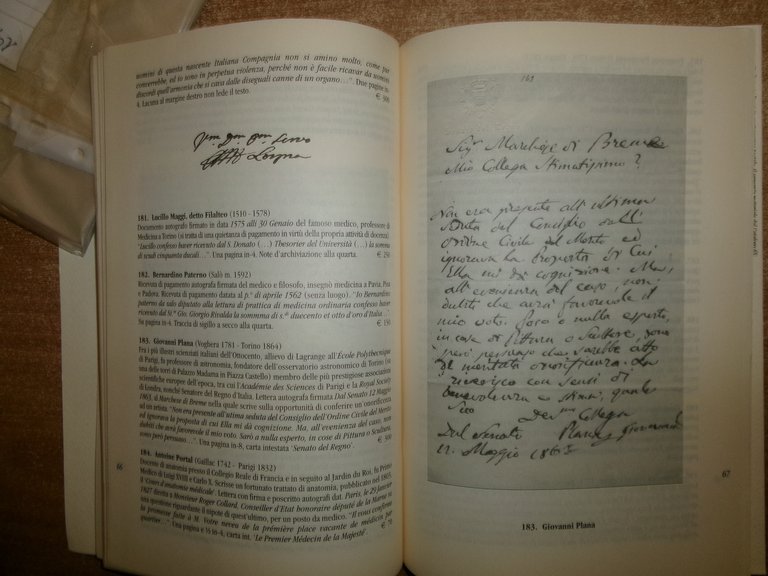 uomini di questa nascente Italiana Compagnia non si amino molto, come pur
converrebbe, ed io sono in perpetua violenza, perché non è facile ricavar da uomini
discordi quell'armonia che si cava dalle diseguali canne di un organo…". Due pagine in-
4. Lacuna al margine destro non lede il testo. € 500
181. Lucillo Maggi, detto Filalteo (1510 - 1578)
Documento autografo firmato in data 1575 alli 30 Genaio del famoso medico, professore di
Medicina a Torino (si tratta di una quietanza di pagamento in virtù della propria attività di docente)
"Lucillo confesso haver ricevuto dal S. Donato (…) Thesorier del Università (…) la somma
di scudi cinquanta ducali …". Una pagina in-4. Note d'archiviazione alla quarta. € 250
182. Bernardino Paterno (Salò m. 1592)
Ricevuta di pagamento autografa firmata del medico e filosofo, insegnò medicina a Pavia, Pisa
e Padova. Ricevuta di pagamento datata al p.° di aprile 1562 (senza luogo). "Io Bernardino
paterno da salo diputato alla lettura di prattica di medicina ordinaria confesso haver
ricevuto dal Sl.° Gio. Giorgio Rivalda la sommma di s.ti duecento et otto d'oro d'Italia…".
Su pagina in-4. Traccia di sigillo a secco alla quarta. € 150
183. Giovanni Plana (Voghera 1781 - Torino 1864)
Fra i più illustri scienziati italiani dell'Ottocento, allievo di Lagrange all'École Polythecnique
di Parigi, fu professore di astronomia, fondatore dell'osservatorio astronomico di Torino (su
una delle torri di Palazzo Madama in Piazza Castello) membro delle più prestigiose associazioni
scientifiche europee dell'epoca, tra cui l'Académie des Sciences di Parigi e la Royal Society
di Londra, nonché Senatore del Regno d'Italia. Lettera autografa firmata Dal Senato 12 Maggio
1863, al Marchese di Breme nella quale scrive sulla opportunità di conferire un'onorificenza
ad un artista. "Non era presente all'ultima seduta del Consiglio dell'Ordine Civile del Merito
ed ignorava la proposta di cui Ella mi dà cognizione. Ma, all'evenienza del caso, non
dubiti che avrà favorevole il mio voto. Sarò a nulla esperto, in cose di Pittura o Scultura,
però penso…". Una pagina in-8, carta intestata 'Senato del Regno'. € 500
184. Antoine Portal (Gaillac 1742 - Parigi 1832)
Docente di anatomia presso il Collegio Reale di Francia e in seguito al Jardin du Roi, fu Primo
Medico di Luigi XVIII e Carlo X. Scrisse un fortunato trattato di anatomia, pubblicato nel 1803,
il 'Cours d'anatomie médicale'. Lettera con firma e poscritto autografi dat. Paris, le 29 Janvier
1827 diretta a Monsieur Roger Collard, Conseiller d'Etat honoraire député de la Marne su
una questione riguardante il nipote di quest'ultimo, per un posto da medico. "Il vous confirme
la promesse faite à M. Votre neveu de la première place vacante de médicin par
quartier…". Una pagina e ½ in-4, carta int. 'Le Premier Médecin de la Majesté'. € 70
66
Sigr Marchese di Breme
Mio Collega Stimatissimo!
Non era presente all'ultima
seduta del Consiglio dell'
Ordine Civile del Merito ed
ignorava la proposta di cui
Ella mi dà cognizione. Ma,
all'evenienza del caso, non
dubiti che avrà favorevole il
mio voto. Poco o nulla esperto,
in cose di Pittura o Scultura,
però penso che sarebbe atto
di meritata onorificenza. La
riverisco con sensi di
benevolenza e stima, quale
Suo
Collega
Dal Senato Plana Giovanni
12 Maggio 1863
67
183. Giovanni Plana